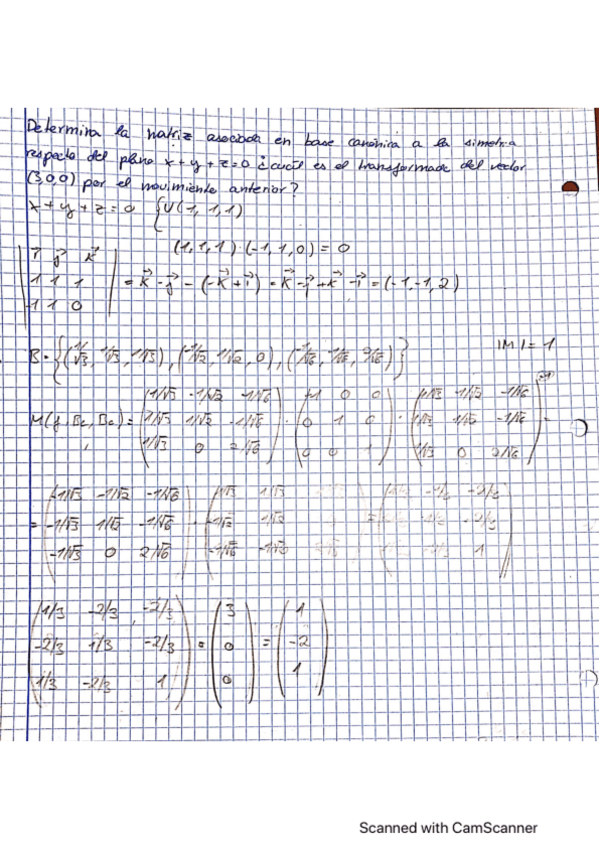 Determina la matriz asociada en base canónica a la simetria
respecto del plano x+y+z=0 ¿cuál es el transformado del vector
(3,0,0) por el movimiento anterior?
x+y+z=0 {U(1,1,1)
(1,1,1)·(-1,1,0)=0
i j k
1 1 1 = k-j-(-k+i) = k-j+k-i = (-1,-1,2)
1 1 0
B = {(1/√3, 1/√3, 1/√3), (-1/√2, 1/√2, 0), (-1/√6, -1/√6, 2/√6)} |M|=1
1/√3 -1/√2 -1/√6 -1 0 0 1/√3 -1/√2 -1/√6
M(f, Bc, Bc) = 1/√3 1/√2 -1/√6 · 0 1 0 · 1/√3 1/√2 -1/√6 =
1/√3 0 2/√6 0 0 1 1/√3 0 2/√6
-1/√3 -1/√2 -1/√6 1/√3 1/√3 -2/3 -2/3
= -1/√3 1/√2 -1/√6 · -1/√2 1/√2 = -2/3
-1/√3 0 2/√6 -1/√6 -2/3 1
1/3 -2/3 -2/3 3 1
-2/3 1/3 -2/3 · 0 = -2
1/3 -2/3 1 0 1
Scanned with CamScanner